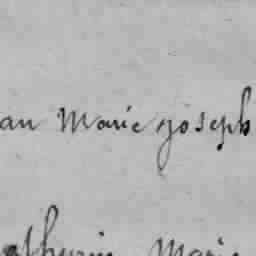 an Marie joseph
athurin Marie